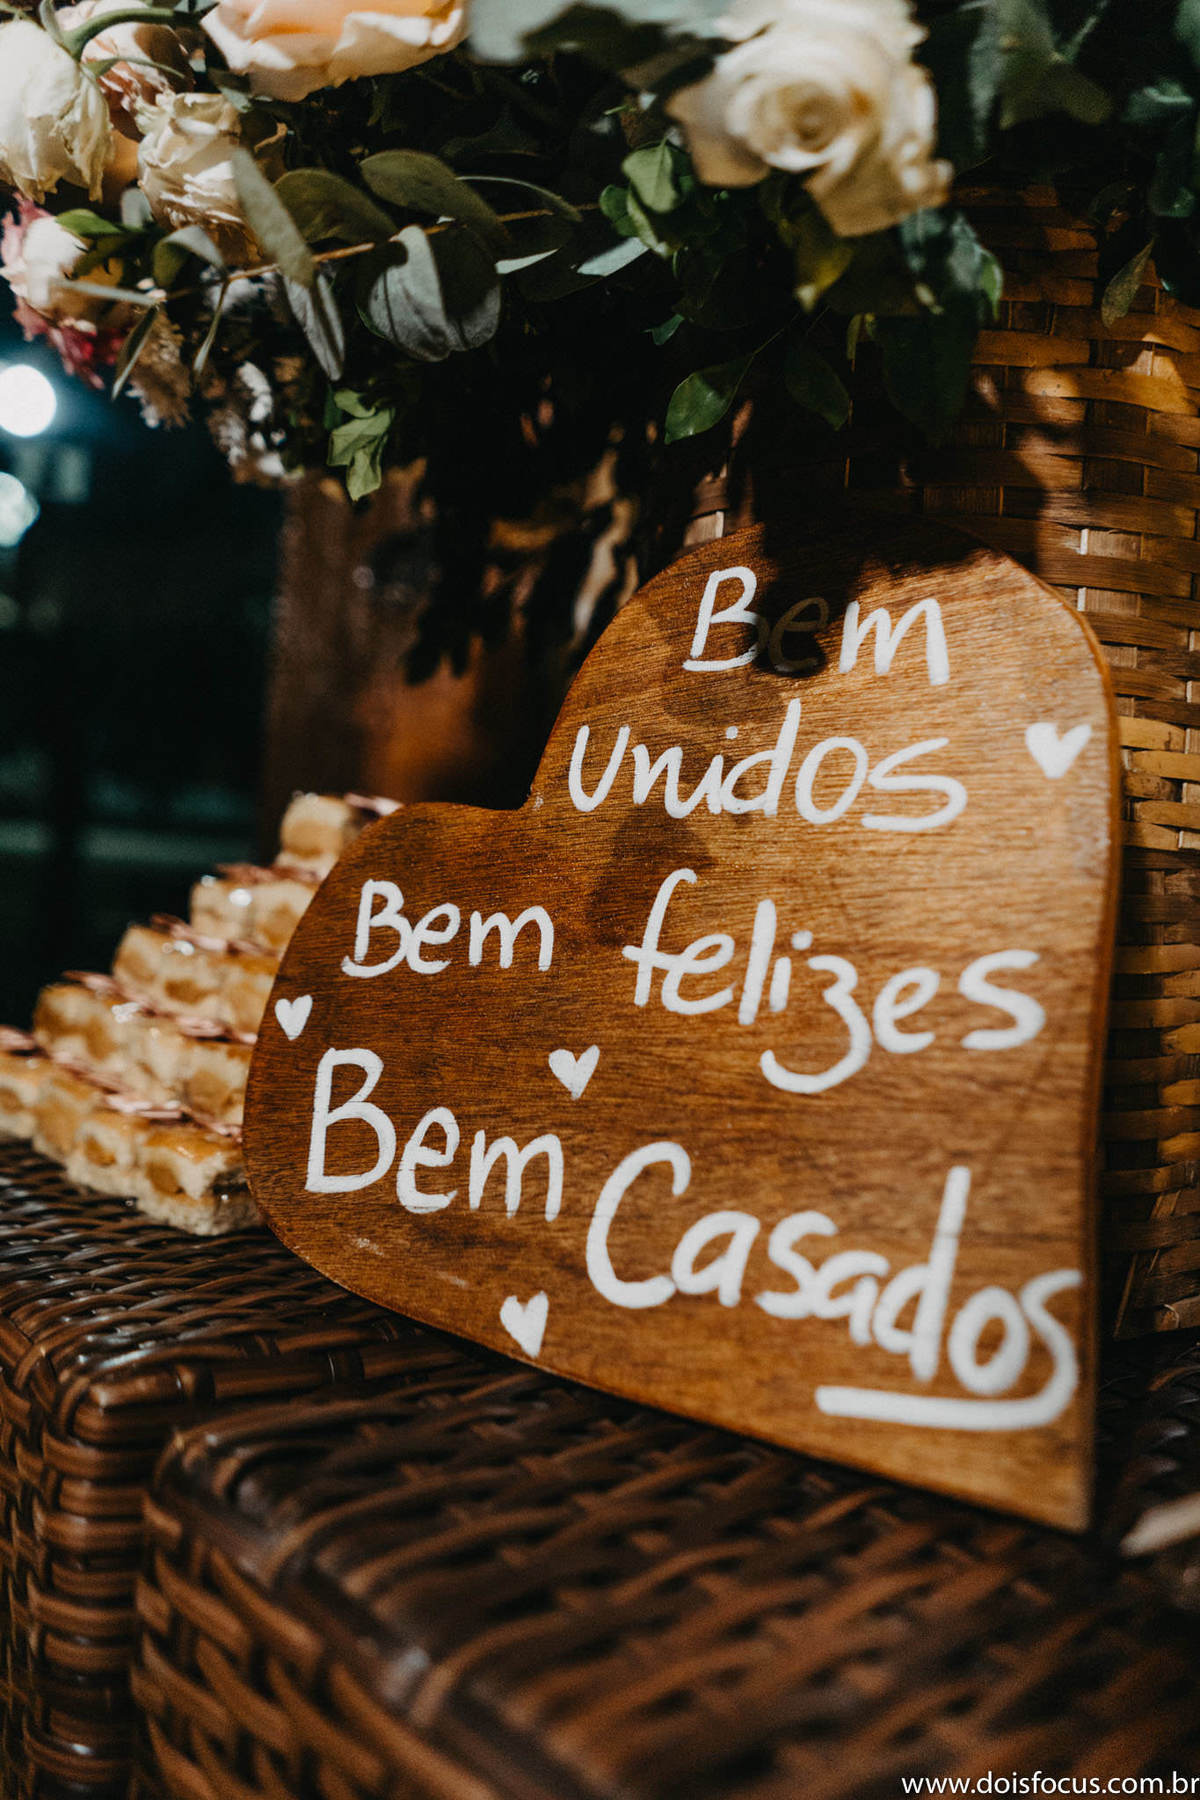 Bem
unidos
Bem felizes
Bem Casados
www.doisfocus.com.br